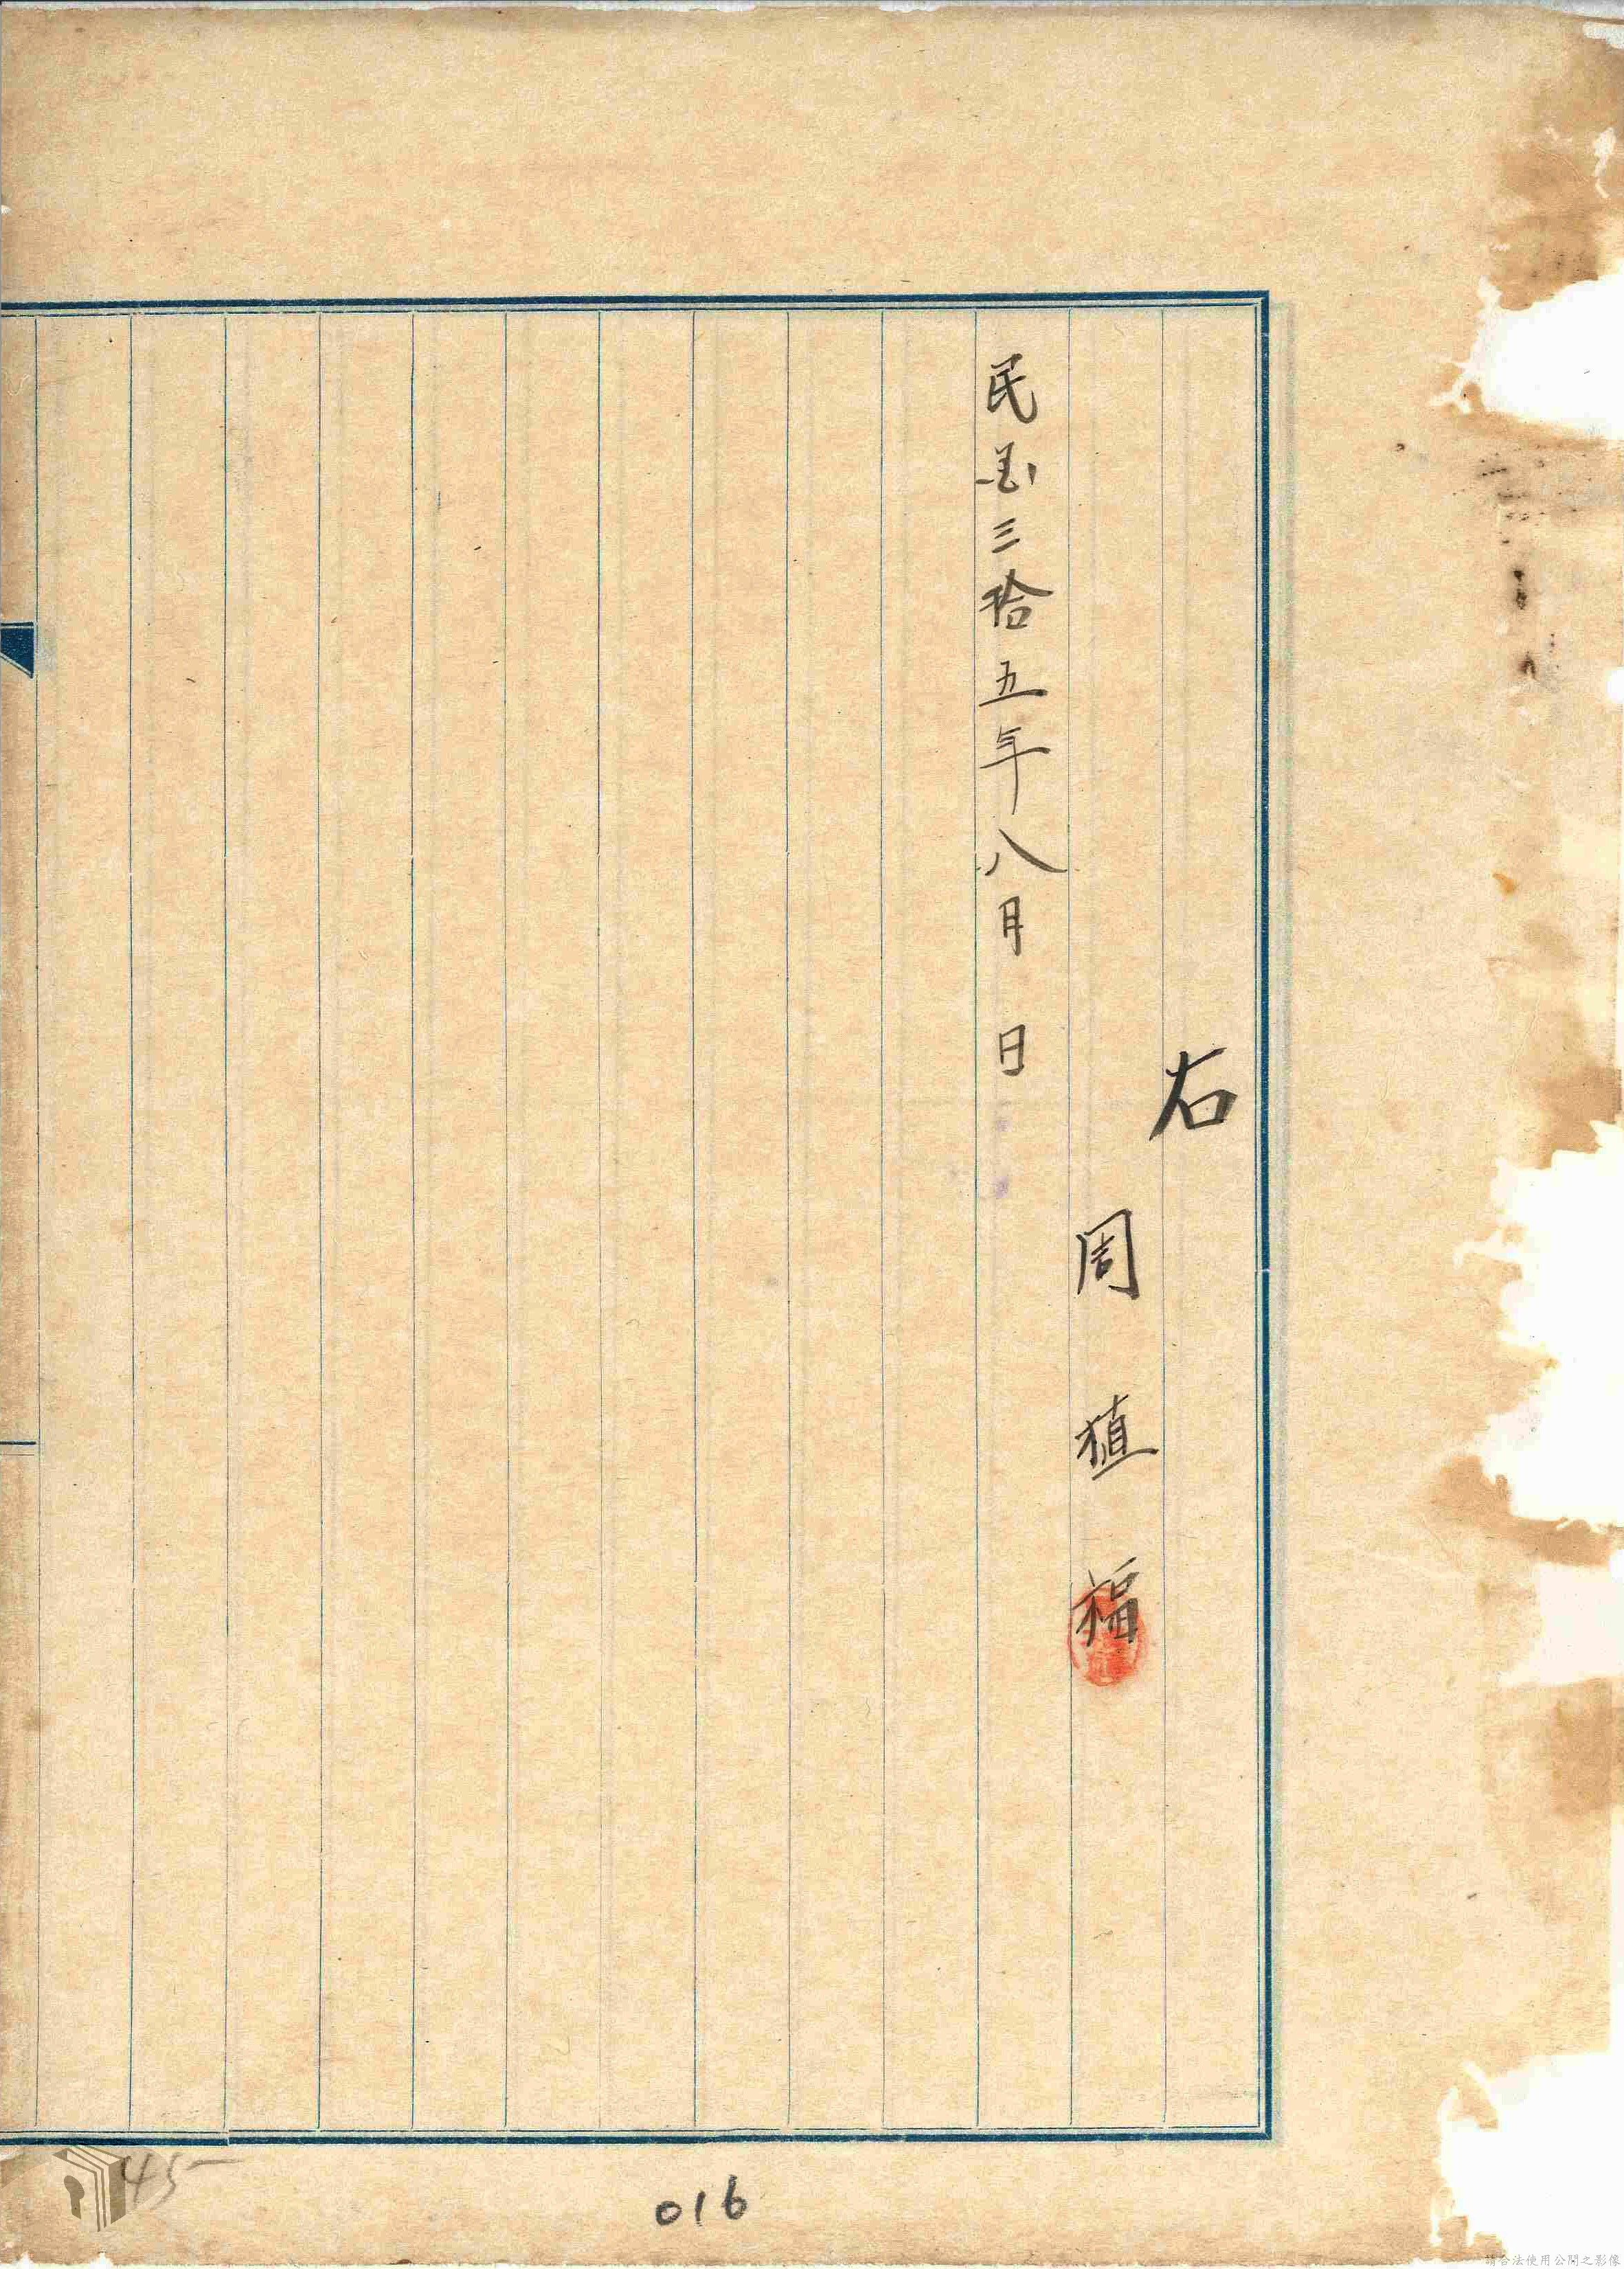 右
周植福
民國三拾五年八月 日
016
45
請合法使用公開之影像